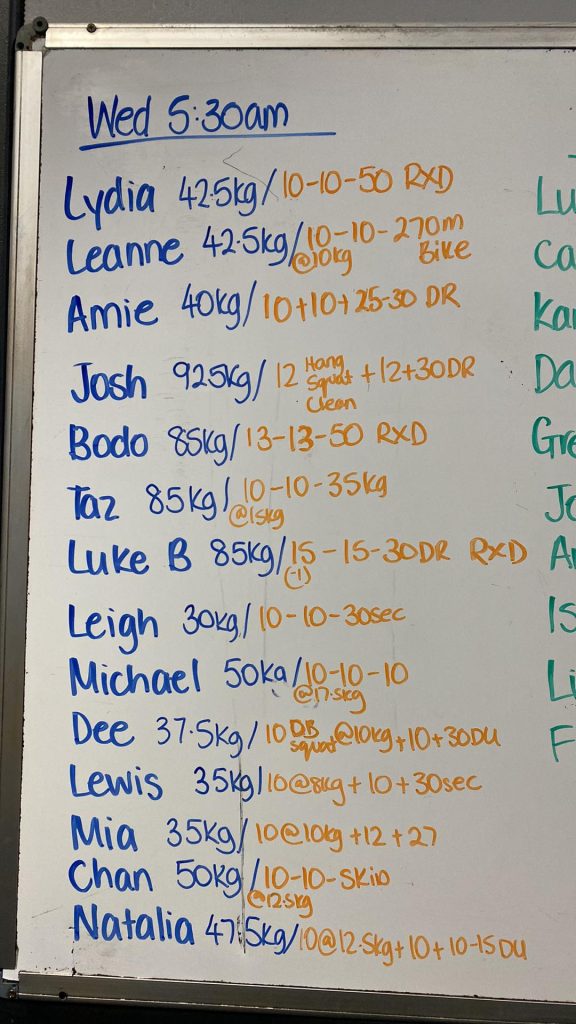 Wed 5:30am
Lydia 42.5kg/10-10-50 RXD
Leanne 42.5kg/10-10-270m Bike
@10kg
Amie 40kg/10+10+25-30 DR
Josh 92.5kg/12 Hang Squat Clean +12+30DR
Bodo 85kg/13-13-50 RXD
Taz 85kg/10-10-35kg
@15kg
Luke B 85kg/15-15-30DR RXD
(-1)
Leigh 30kg/10-10-30sec
Michael 50kg/10-10-10
@17.5kg
Dee 37.5kg/10 DB Squat @10kg+10+30DU
Lewis 35kg/10@8kg+10+30sec
Mia 35kg/10@10kg+12+27
Chan 50kg/10-10-Skip
@12.5kg
Natalia 47.5kg/10@12.5kg+10+10-15DU
Lu
Ca
Kar
Da
Gre
Jo
Ar
Is
Li
F